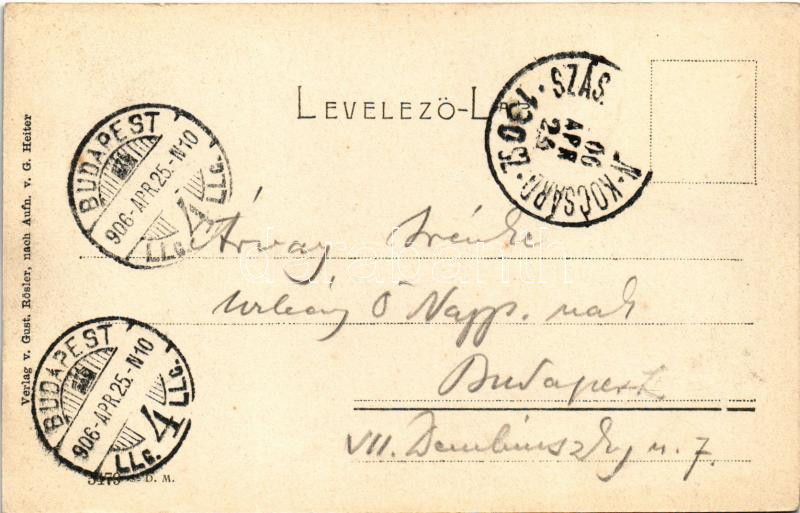 LEVELEZŐ-LAP
SZÁS. N-KOCSÁRD · 130
06
APR
25
BUDAPEST
906-APR.25.-N10
4
Árvay Irénke
urleány Ő Nagys. nak
Budapest
VII. Dembinszky u. 7.
BUDAPEST
906-APR.25.-N10
4
Verlag v. Gust. Rösler, nach Aufn. v. G. Heiter
D. M.
darabanth